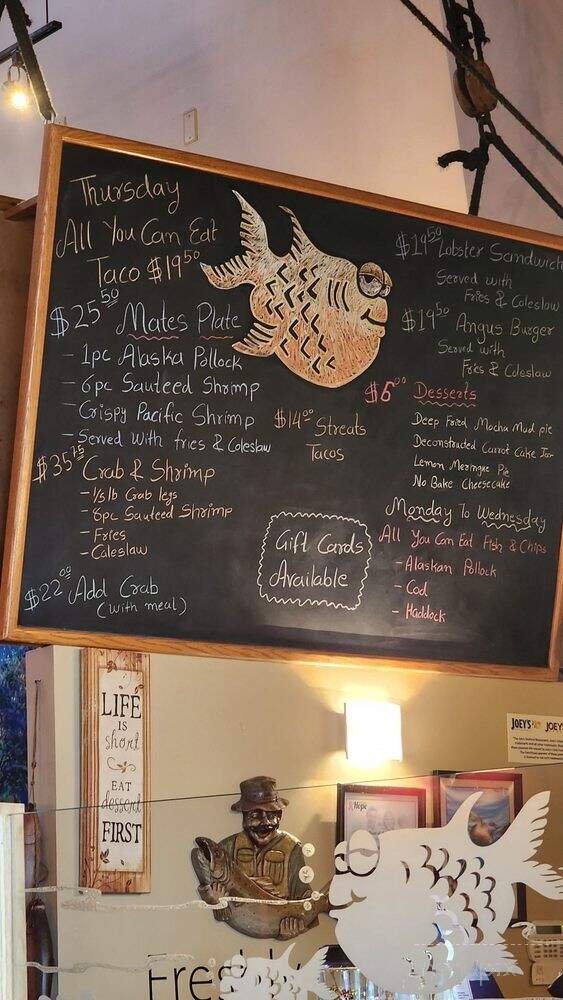 Thursday
All You Can Eat
Taco $19⁵⁰
$25⁵⁰ Mates Plate
- 1pc Alaska Pollock
- 6pc Sauteed Shrimp
- Crispy Pacific Shrimp
- Served with fries & Coleslaw
$35⁷⁵ Crab & Shrimp
- 1/5 lb Crab legs
- 8pc Sauteed Shrimp
- Fries
- Coleslaw
$22⁰⁰ Add Crab
(with meal)
$14⁰⁰ Streats
Tacos
Gift Cards
Available
$19⁵⁰ Lobster Sandwich
Served with
Fries & Coleslaw
$19⁵⁰ Angus Burger
Served with
Fries & Coleslaw
$6⁰⁰ Desserts
Deep Fried Mocha Mud pie
Deconstructed Carrot Cake Jar
Lemon Meringue Pie
No Bake Cheesecake
Monday To Wednesday
All You Can Eat Fish & Chips
- Alaskan Pollock
- Cod
- Haddock
LIFE
IS
short
EAT
dessert
FIRST
JOEY'S JOEY'
Hope